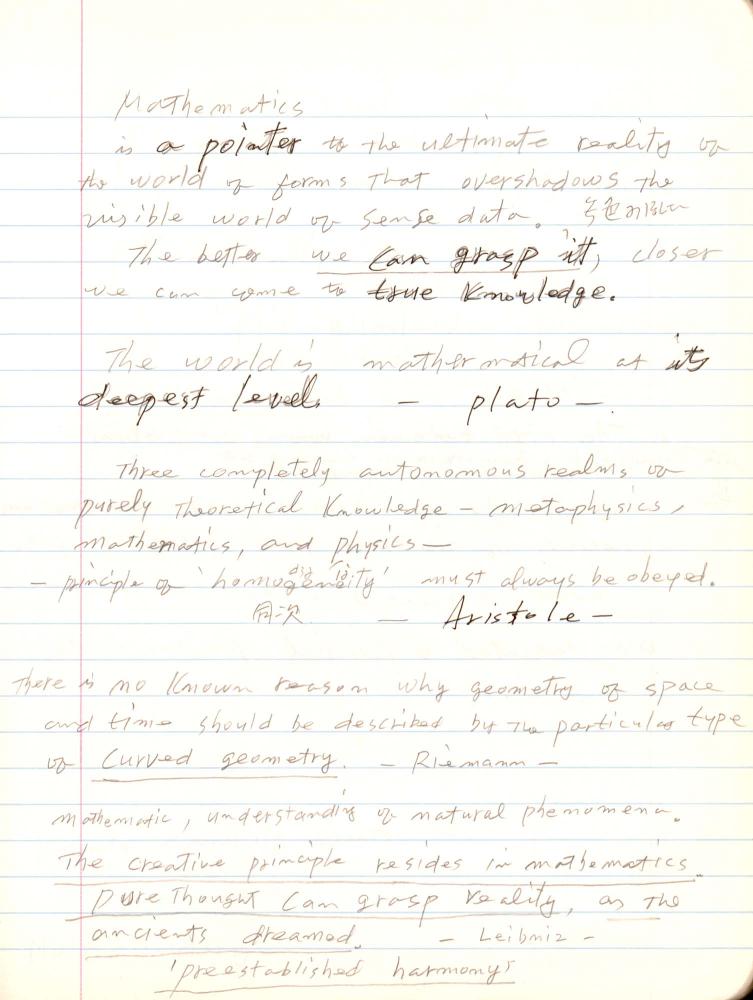 Mathematics
is a pointer to the ultimate reality of
the world of forms that overshadows the
visible world of sense data.
The better we can grasp it, closer
we can come to true knowledge.
The world is mathermatical at its
deepest levels – plato –.
Three completely autonomous realms of
purely theoretical knowledge – metaphysics,
mathematics, and physics –
– principle of 'homogeneity' must always be obeyed.
同次 – Aristole –
There is no known reason why geometry of space
and time should be described by the particular type
of curved geometry. – Riemann –
mathematic, understanding of natural phenomena.
The creative principle resides in mathematics.
pure thought can grasp reality, as the
ancients dreamed. – Leibniz –
'preestablished harmony'